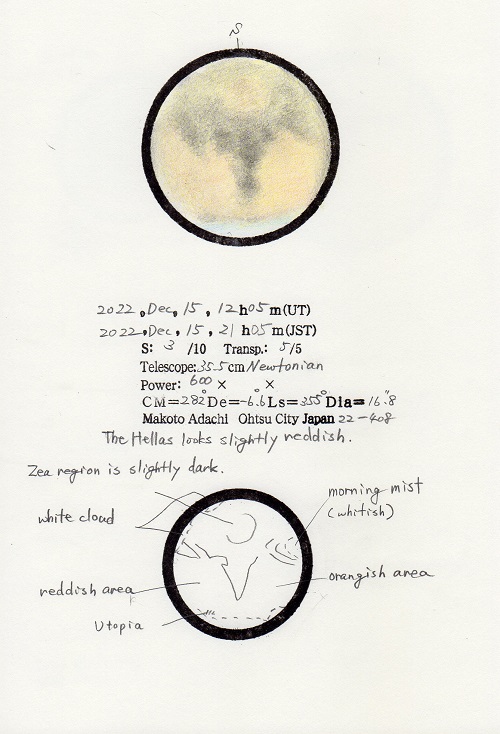 S
2022, Dec, 15, 12h05m(UT)
2022, Dec, 15, 21h05m(JST)
S: 3 /10 Transp.: 5/5
Telescope: 35.5cm Newtonian
Power: 600 × ×
CM=282° De=-6.°6 Ls=355° Dia=16."8
Makoto Adachi Ohtsu City Japan 22-408
The Hellas looks slightly reddish.
Zea region is slightly dark.
morning mist
(whitish)
white cloud
orangish area
reddish area
Utopia